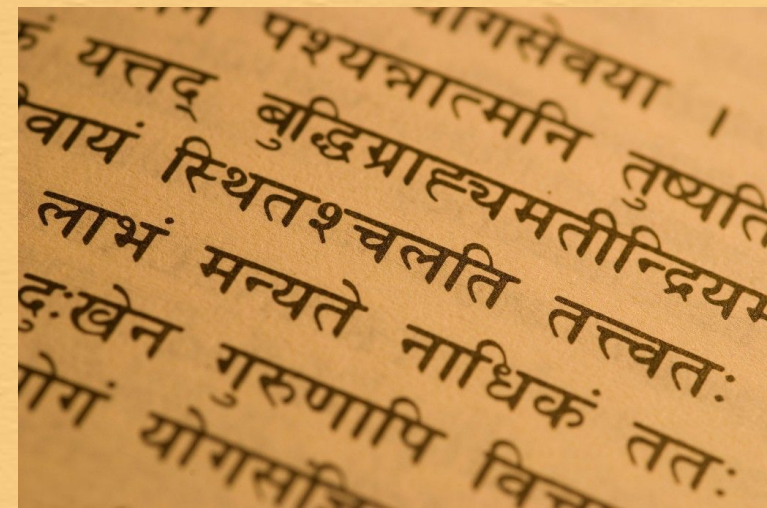 योगसेवया ।
पश्यन्नात्मनि तुष्यति
यत्तद् बुद्धिग्राह्यमतीन्द्रियम
वायं स्थितश्चलति तत्त्वतः
लाभं मन्यते नाधिकं ततः
दुःखेन गुरुणापि